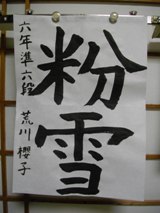 粉雪
六年準六段 荒川櫻子